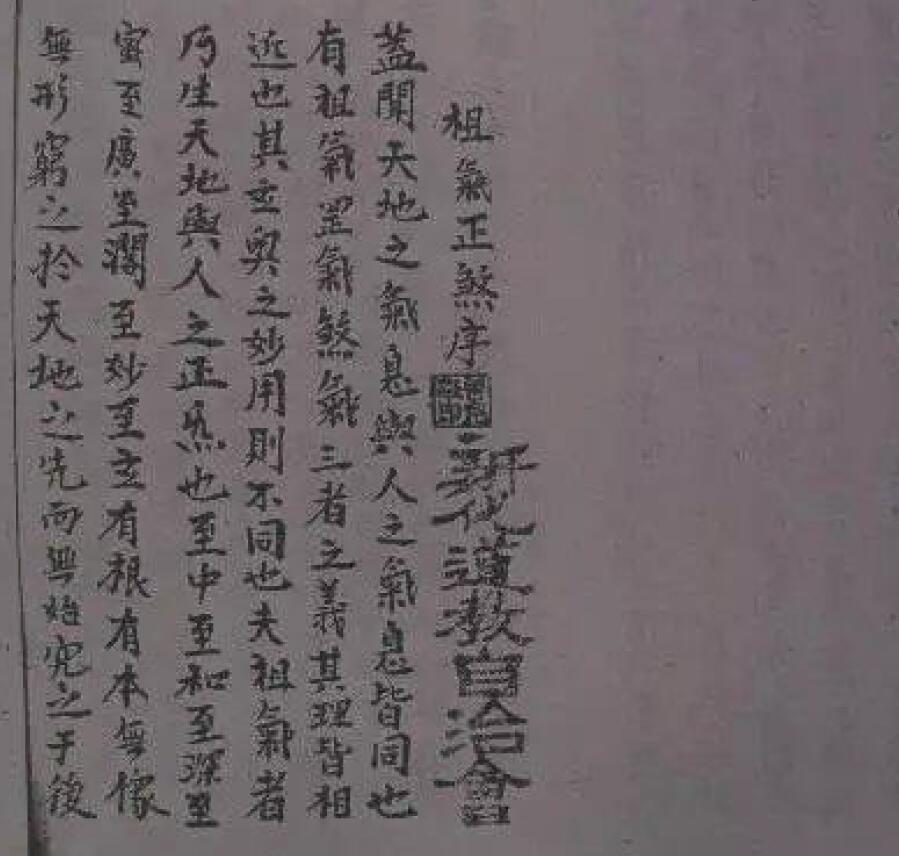 祖氣正煞序
新化道教自治會
蓋聞天地之氣息與人之氣息皆同也
有祖氣罡氣煞氣三者之義其理皆相
近也其玄奥之妙用則不同也夫祖氣者
乃生天地與人之正炁也至中至和至深至
密至廣至濶至妙至玄有根有本無像
無形窮之扵天地之先而無始究之于後